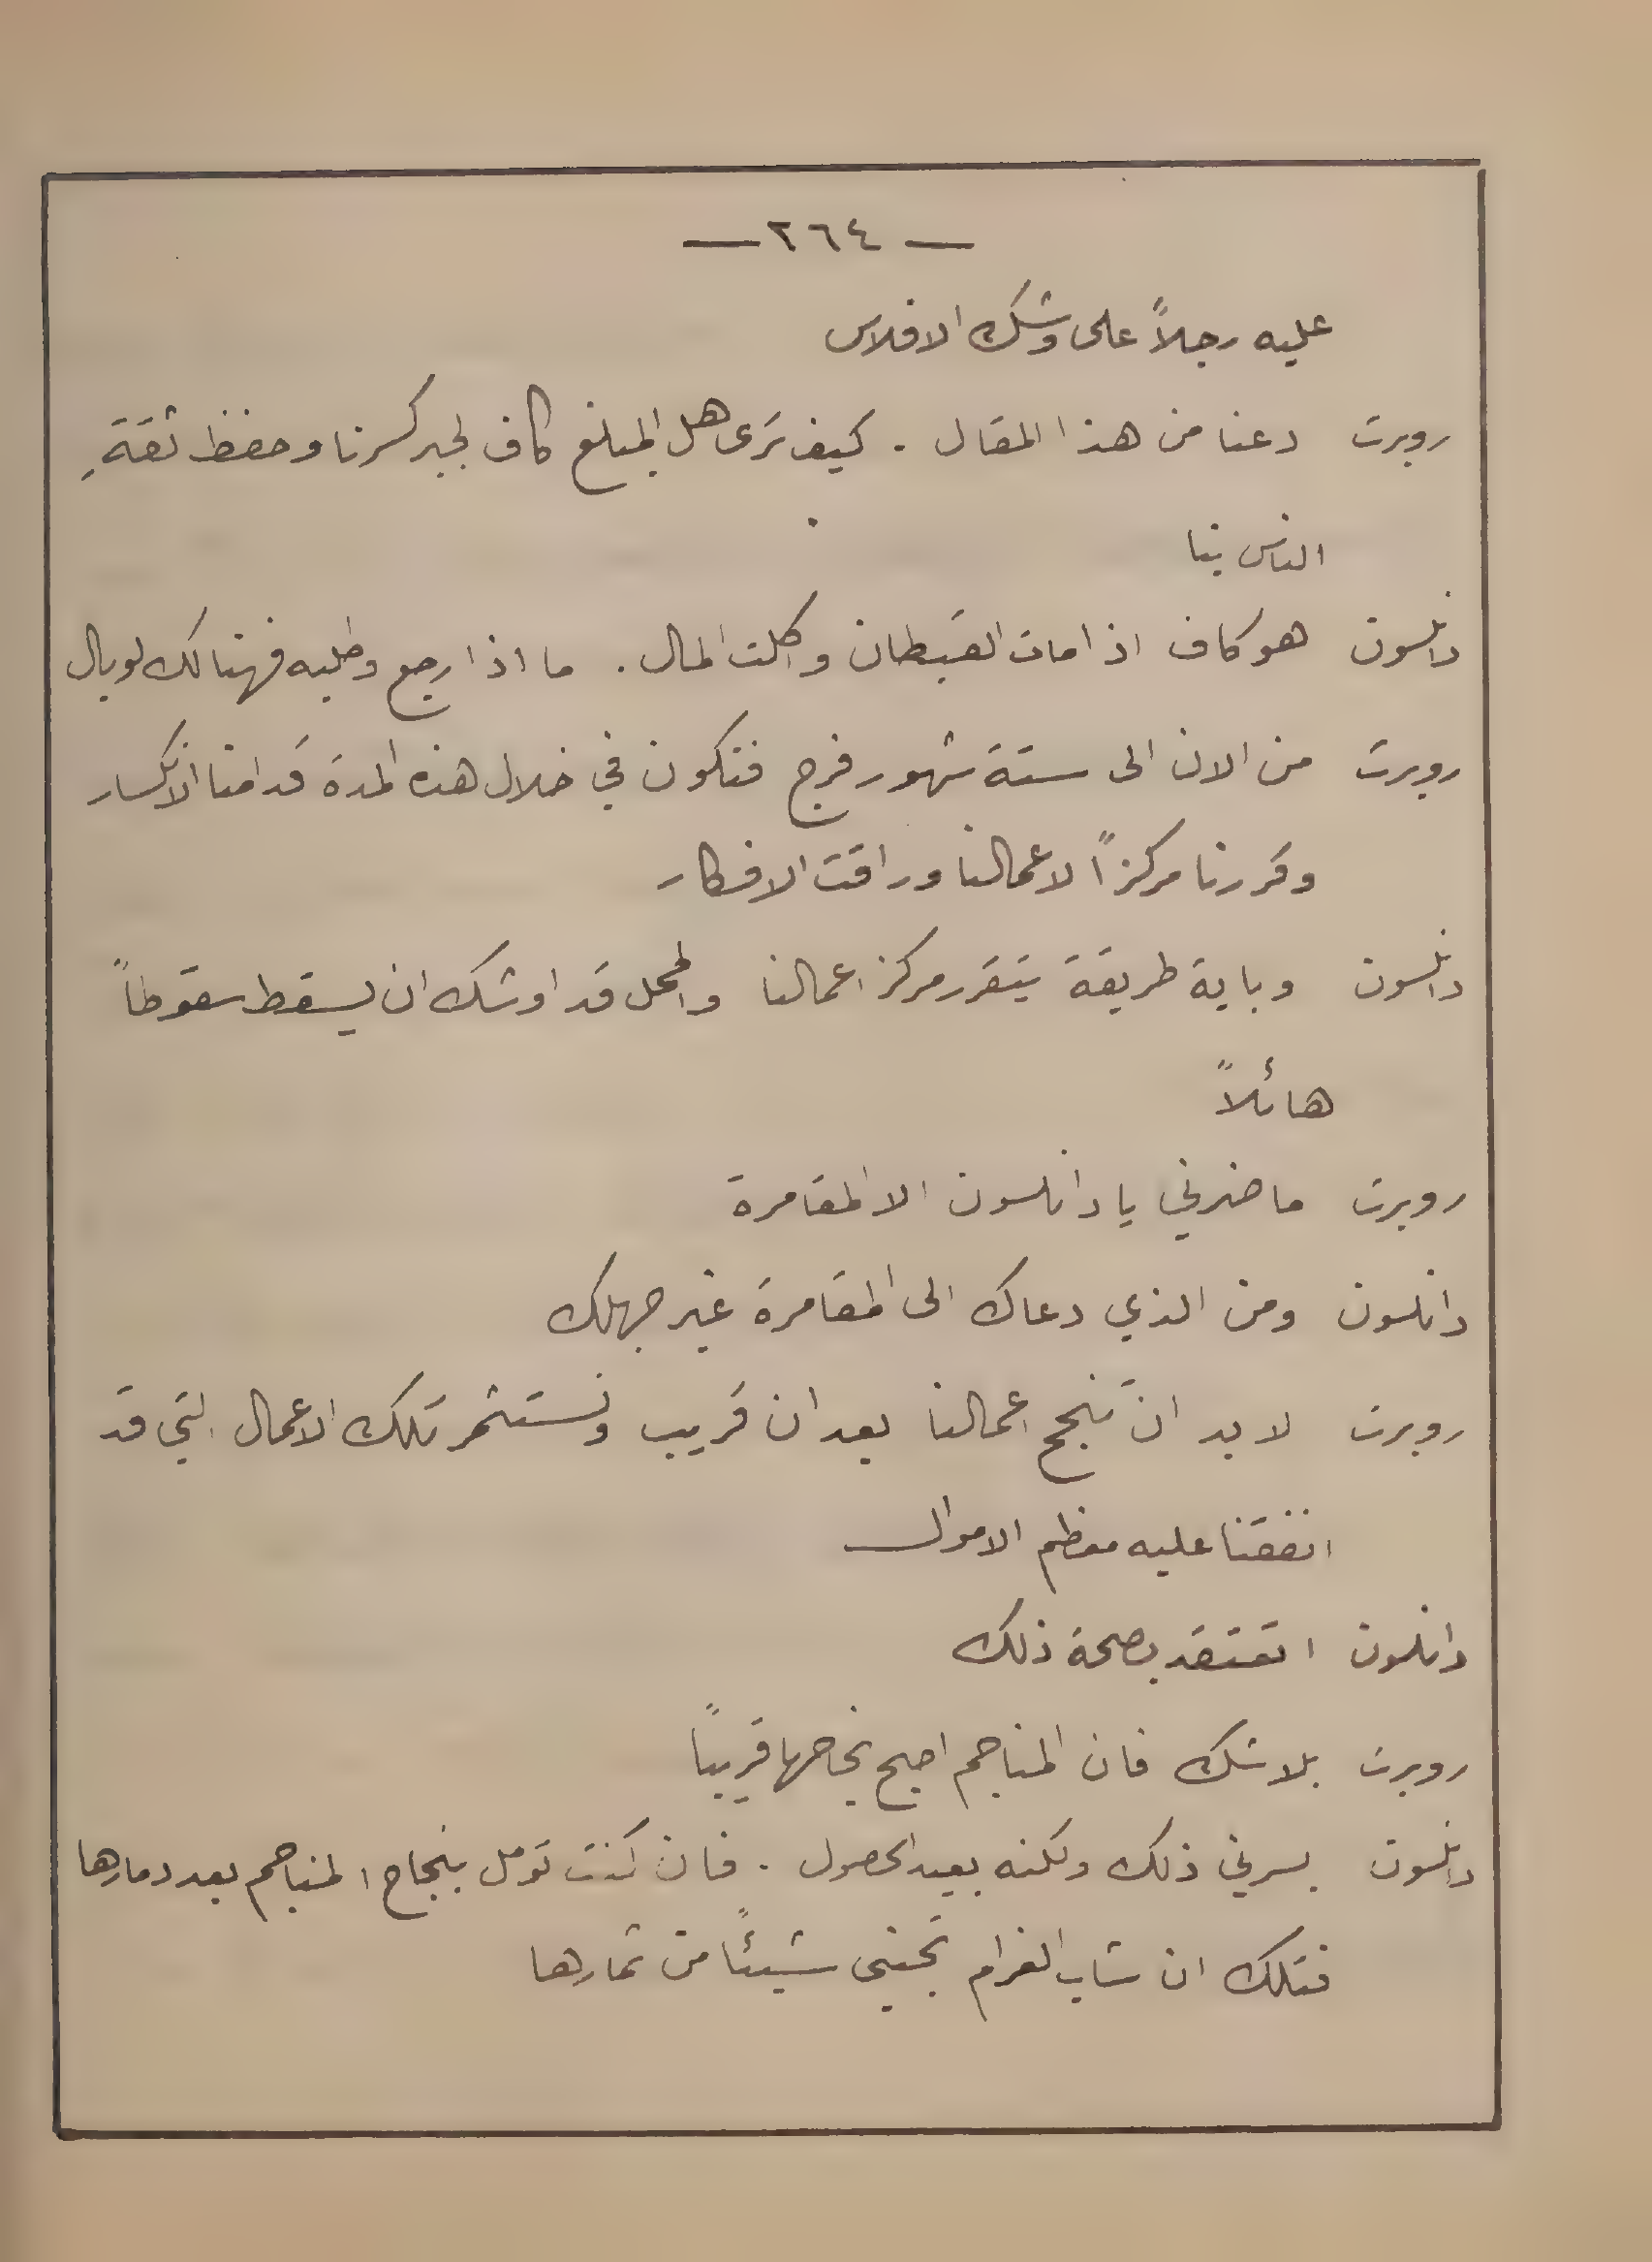 — ٢٦٤ —
عليه رجلاً على وشك الافلاس
روبرت دعنا من هذا المقال . كيف ترى هل المبلغ كاف لجبر كسرنا وحفظ ثقةِ
الناس بنا
دانلسون هو كاف اذا مات القبطان واكلت المال . ما اذا رجع وطلبه فهنالك لوبال
روبرت من الان الى ستة شهور فرج فنكون في خلال هذه المدة قد امنا الانكسار
وقررنا مركزاً لاعمالنا وراقت الافكار
دانلسون وباية طريقة يتقرر مركز اعمالنا والمحل قد اوشك ان يسقط سقوطاً
هائلاً
روبرت ما ضرني يا دانلسون الا المقامرة
دانلسون ومن الذي دعاك الى المقامرة غير جهلك
روبرت لا بد ان تنجح اعمالنا بعد ان قريب ونستثمر تلك الاعمال التي قد
انفقنا عليه معظم الاموال
دانلسون اتعتقد بصحة ذلك
روبرت بلا شك فان المناجم اجح نجاحها قريبًا
دانلسون يسرني ذلك ولكنه بعيد الحصول . فان كنت تومل بنجاح المناجم بعد دمارها
فتلك ان شاب الغرام تجني شيئًا من ثمارها